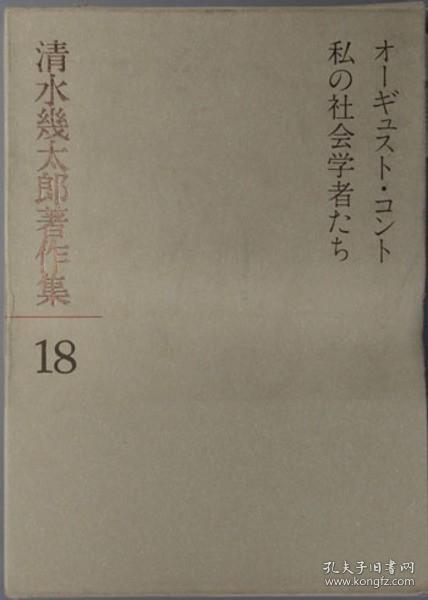 オーギュスト・コント
私の社会学者たち
清水幾太郎著作集
18
孔夫子旧书网
www.kongfz.com